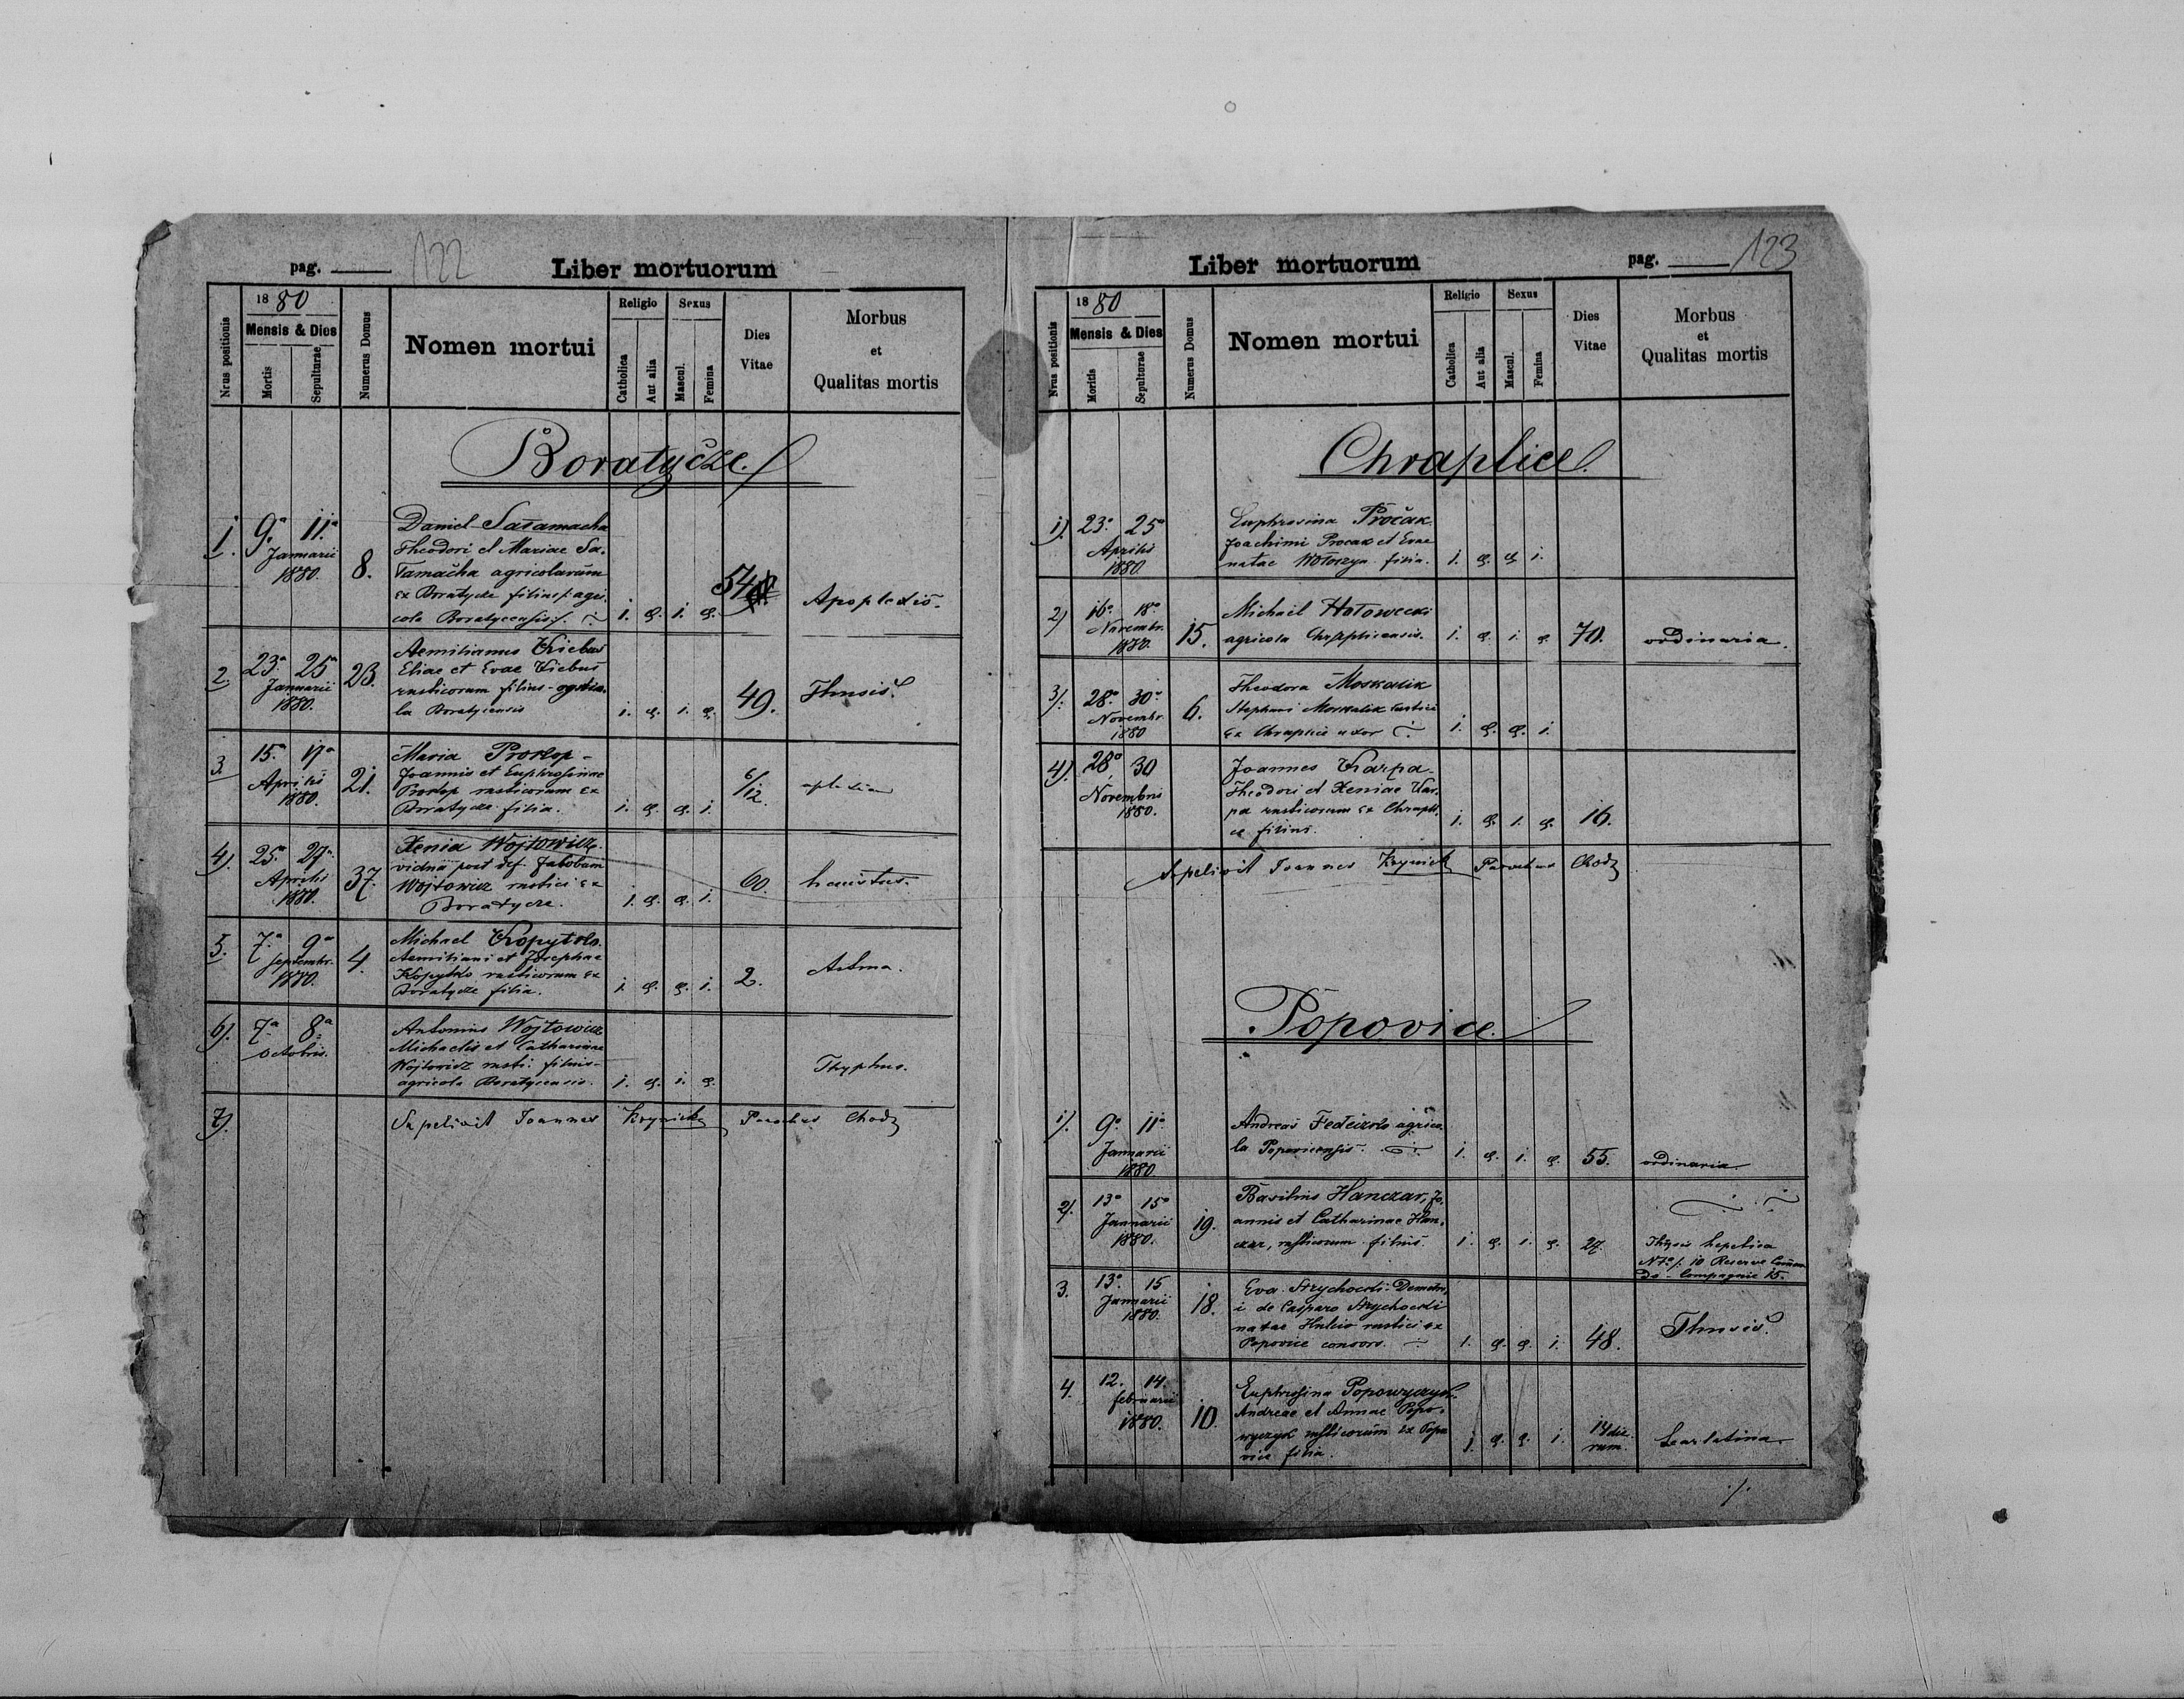 pag. 122
Liber mortuorum
Nrus positionis
1880
Mensis & Dies
Mortis
Sepulturae
Numerus Domus
Nomen mortui
Religio
Catholica
Aut alia
Sexus
Mascul.
Femina
Dies
Vitae
Morbus
et
Qualitas mortis
Boratycze.
1. 9.ª 11.ª
Januarii
1880.
8.
Daniel
Theodori et Mariae Sa-
agricolarum
ex Boratycze filius /: agri
cola Boratycensis :/
1. 1.
54
2. 23.ª 25.ª
Januarii
1880.
23.
Aemilianus Kiebus
Eliae et Evae Kiebus
rusticorum filius - agrico
la Boratycensis
1. 1.
49.
3. 15.ª 17.ª
Aprilis
1880.
21.
Maria Prokop -
Joannis et Euphrosinae
Prokop rusticorum ex
Boratycze filia.
1. 1.
6/12.
4). 25.ª 27.ª
Aprilis
1880.
37.
Xenia Wojtowicz.
vidua post def. Jakobum
Wojtowicz rustici ex
Boratycze.
1. 1.
60.
5. 7.ª 9.ª
Septembr.
1880.
4.
Michael Kopytko.
Aemiliani et Josephae
Kopytko rusticorum ex
Boratycze filia.
1. 1.
2.
Astma.
6). 7.ª 8.ª
Octobris.
Antonius Wojtowicz
Michaelis et Catharinae
Wojtowicz rusti. filius -
agricola Boratycensis.
1. 1.
Thyphus.
7).
Sepelivit Joannes Krynicki Parochus Chodn
Liber mortuorum
pag. 123
Nrus positionis
1880
Mensis & Dies
Mortis
Sepulturae
Numerus Domus
Nomen mortui
Religio
Catholica
Aut alia
Sexus
Mascul.
Femina
Dies
Vitae
Morbus
et
Qualitas mortis
Chraplice.
1). 23.ª 25.ª
Aprilis
1880.
Euphrosina Procak.
Joachimi Procak et Evae
natae Wołoszyn filia.
1. 1.
2) 16.ª 18.ª
Novembr.
1880.
15.
Michael Hołowecki
agricola Chraplicensis.
1. 1.
70.
ordinaria.
3). 28.ª 30.ª
Novembr.
1880
6.
Theodora Moskalik
Stephani Moskalik rustici
ex Chraplice uxor
1. 1.
4). 28.ª 30
Novembris
1880.
Joannes Karpa -
Theodori et Xeniae Kar.
pa rusticorum ex Chrapli
ce filius.
1. 1.
16.
Sepelivit Joannes Krynicki Parochus Chodn
Popovice.
1). 9.ª 11.ª
Januarii
1880.
Andreas Fedeizko agrico
la Popovicensis.
1. 1.
55.
ordinaria
2). 13.ª 15.ª
Januarii
1880.
19.
Basilius Hanczar, Jo.
annis et Catharinae Han.
czar, rusticorum filius.
1. 1.
27.
hepatica
10 Reserve Comman
do - Compagnie 15.
3. 13.ª 15
Januarii
1880.
18.
Eva Strychocki - Demetri,
i de Casparo Strychocki
natae rustici ex
Popovice consors.
1. 1.
48.
4. 12. 14.
februarii
1880.
10.
Euphrosina Popowyczyk.
Andreae et Annae Popo.
wyczyk rusticorum ex Popo
vice filia.
1. 1.
14 die
rum.
Scarlatina
./.